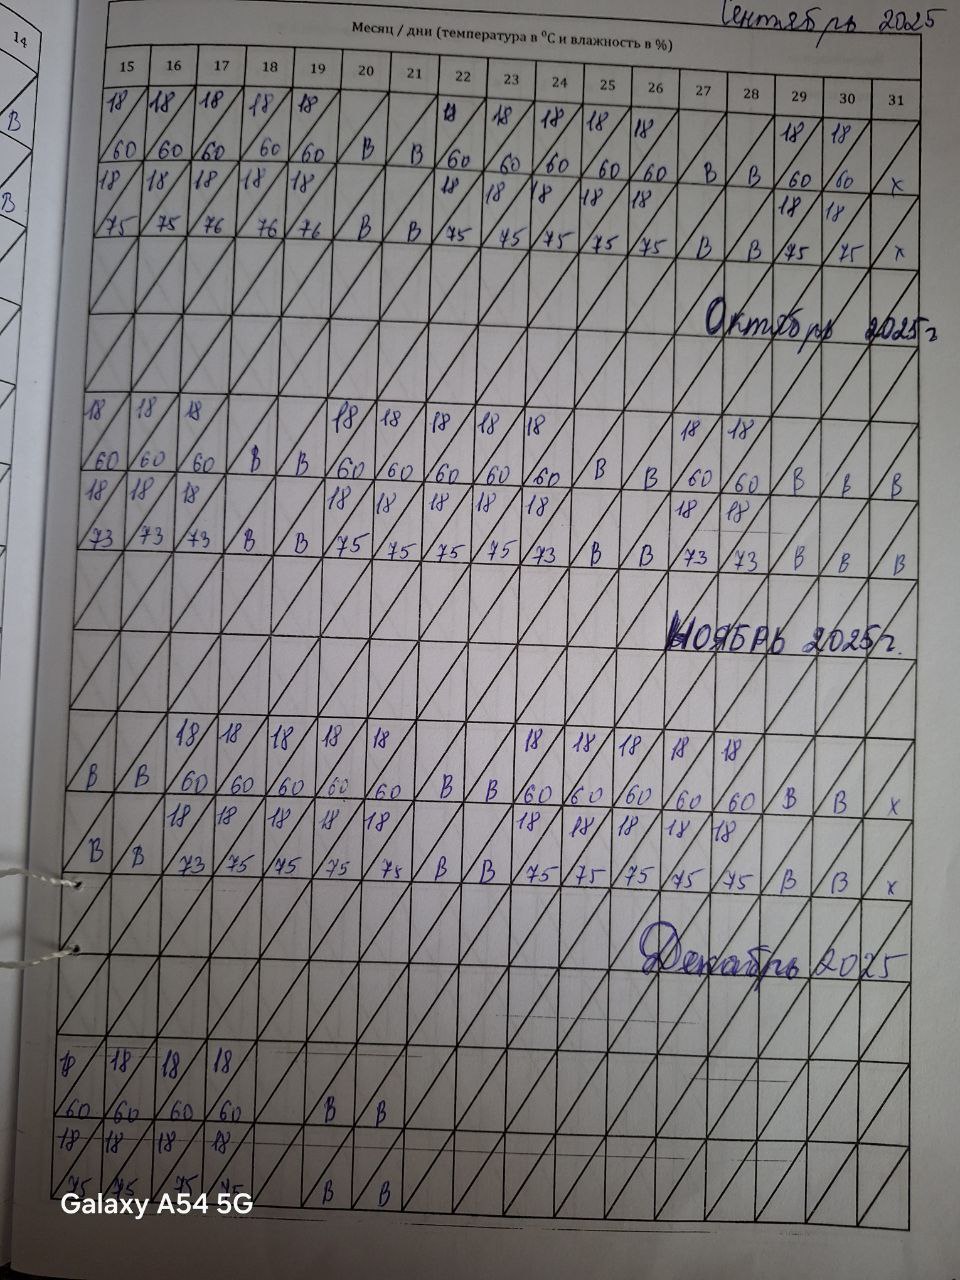 Сентябрь 2025
Месяц / дни (температура в °С и влажность в %)
14
15 16 17 18 19 20 21 22 23 24 25 26 27 28 29 30 31
18 18 18 18 18 18 18 18 18 18 18 18
В
60 60 60 60 60 В В 60 60 60 60 60 В В 60 60 х
18 18 18 18 18 18 18 18 18 18 18 18
В
75 75 76 76 76 В В 75 75 75 75 75 В В 75 75 х
Октябрь 2025г
18 18 18 18 18 18 18 18 18 18
60 60 60 В В 60 60 60 60 60 В В 60 60 В В В
18 18 18 18 18 18 18 18 18 18
73 73 73 В В 75 75 75 75 73 В В 73 73 В В В
Ноябрь 2025г.
18 18 18 18 18 18 18 18 18 18
В В 60 60 60 60 60 В В 60 60 60 60 60 В В х
18 18 18 18 18 18 18 18 18 18
В В 73 75 75 75 75 В В 75 75 75 75 75 В В х
Декабрь 2025
18 18 18 18
60 60 60 60 В В
18 18 18 18
75 75 75 75 В В
Galaxy A54 5G